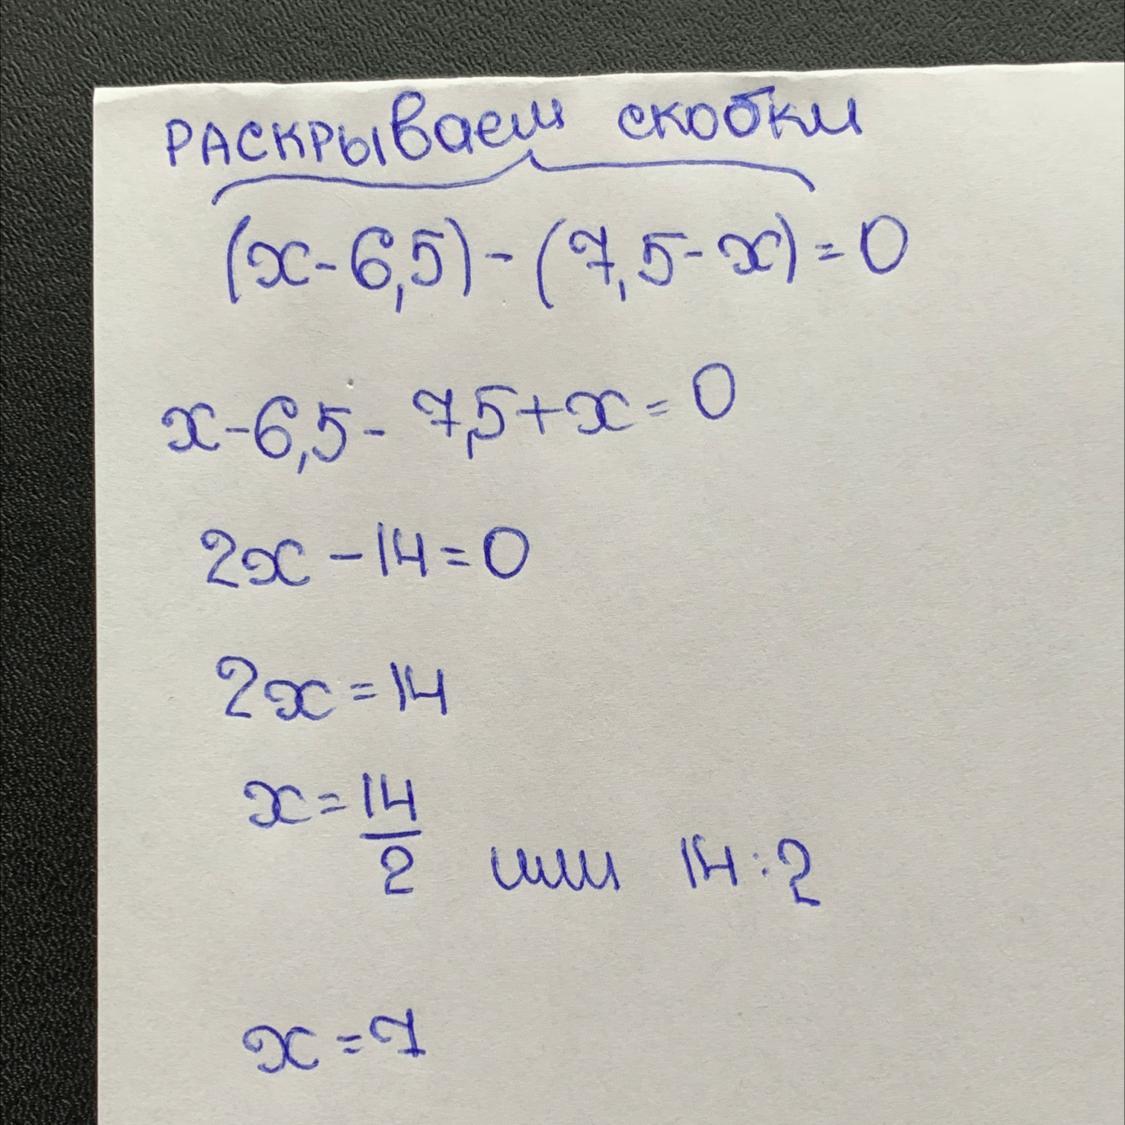 РАСКРЫваем скобки
(x-6,5)-(7,5-x)=0
x-6,5-7,5+x=0
2x-14=0
2x=14
x=14/2 или 14:2
x=7